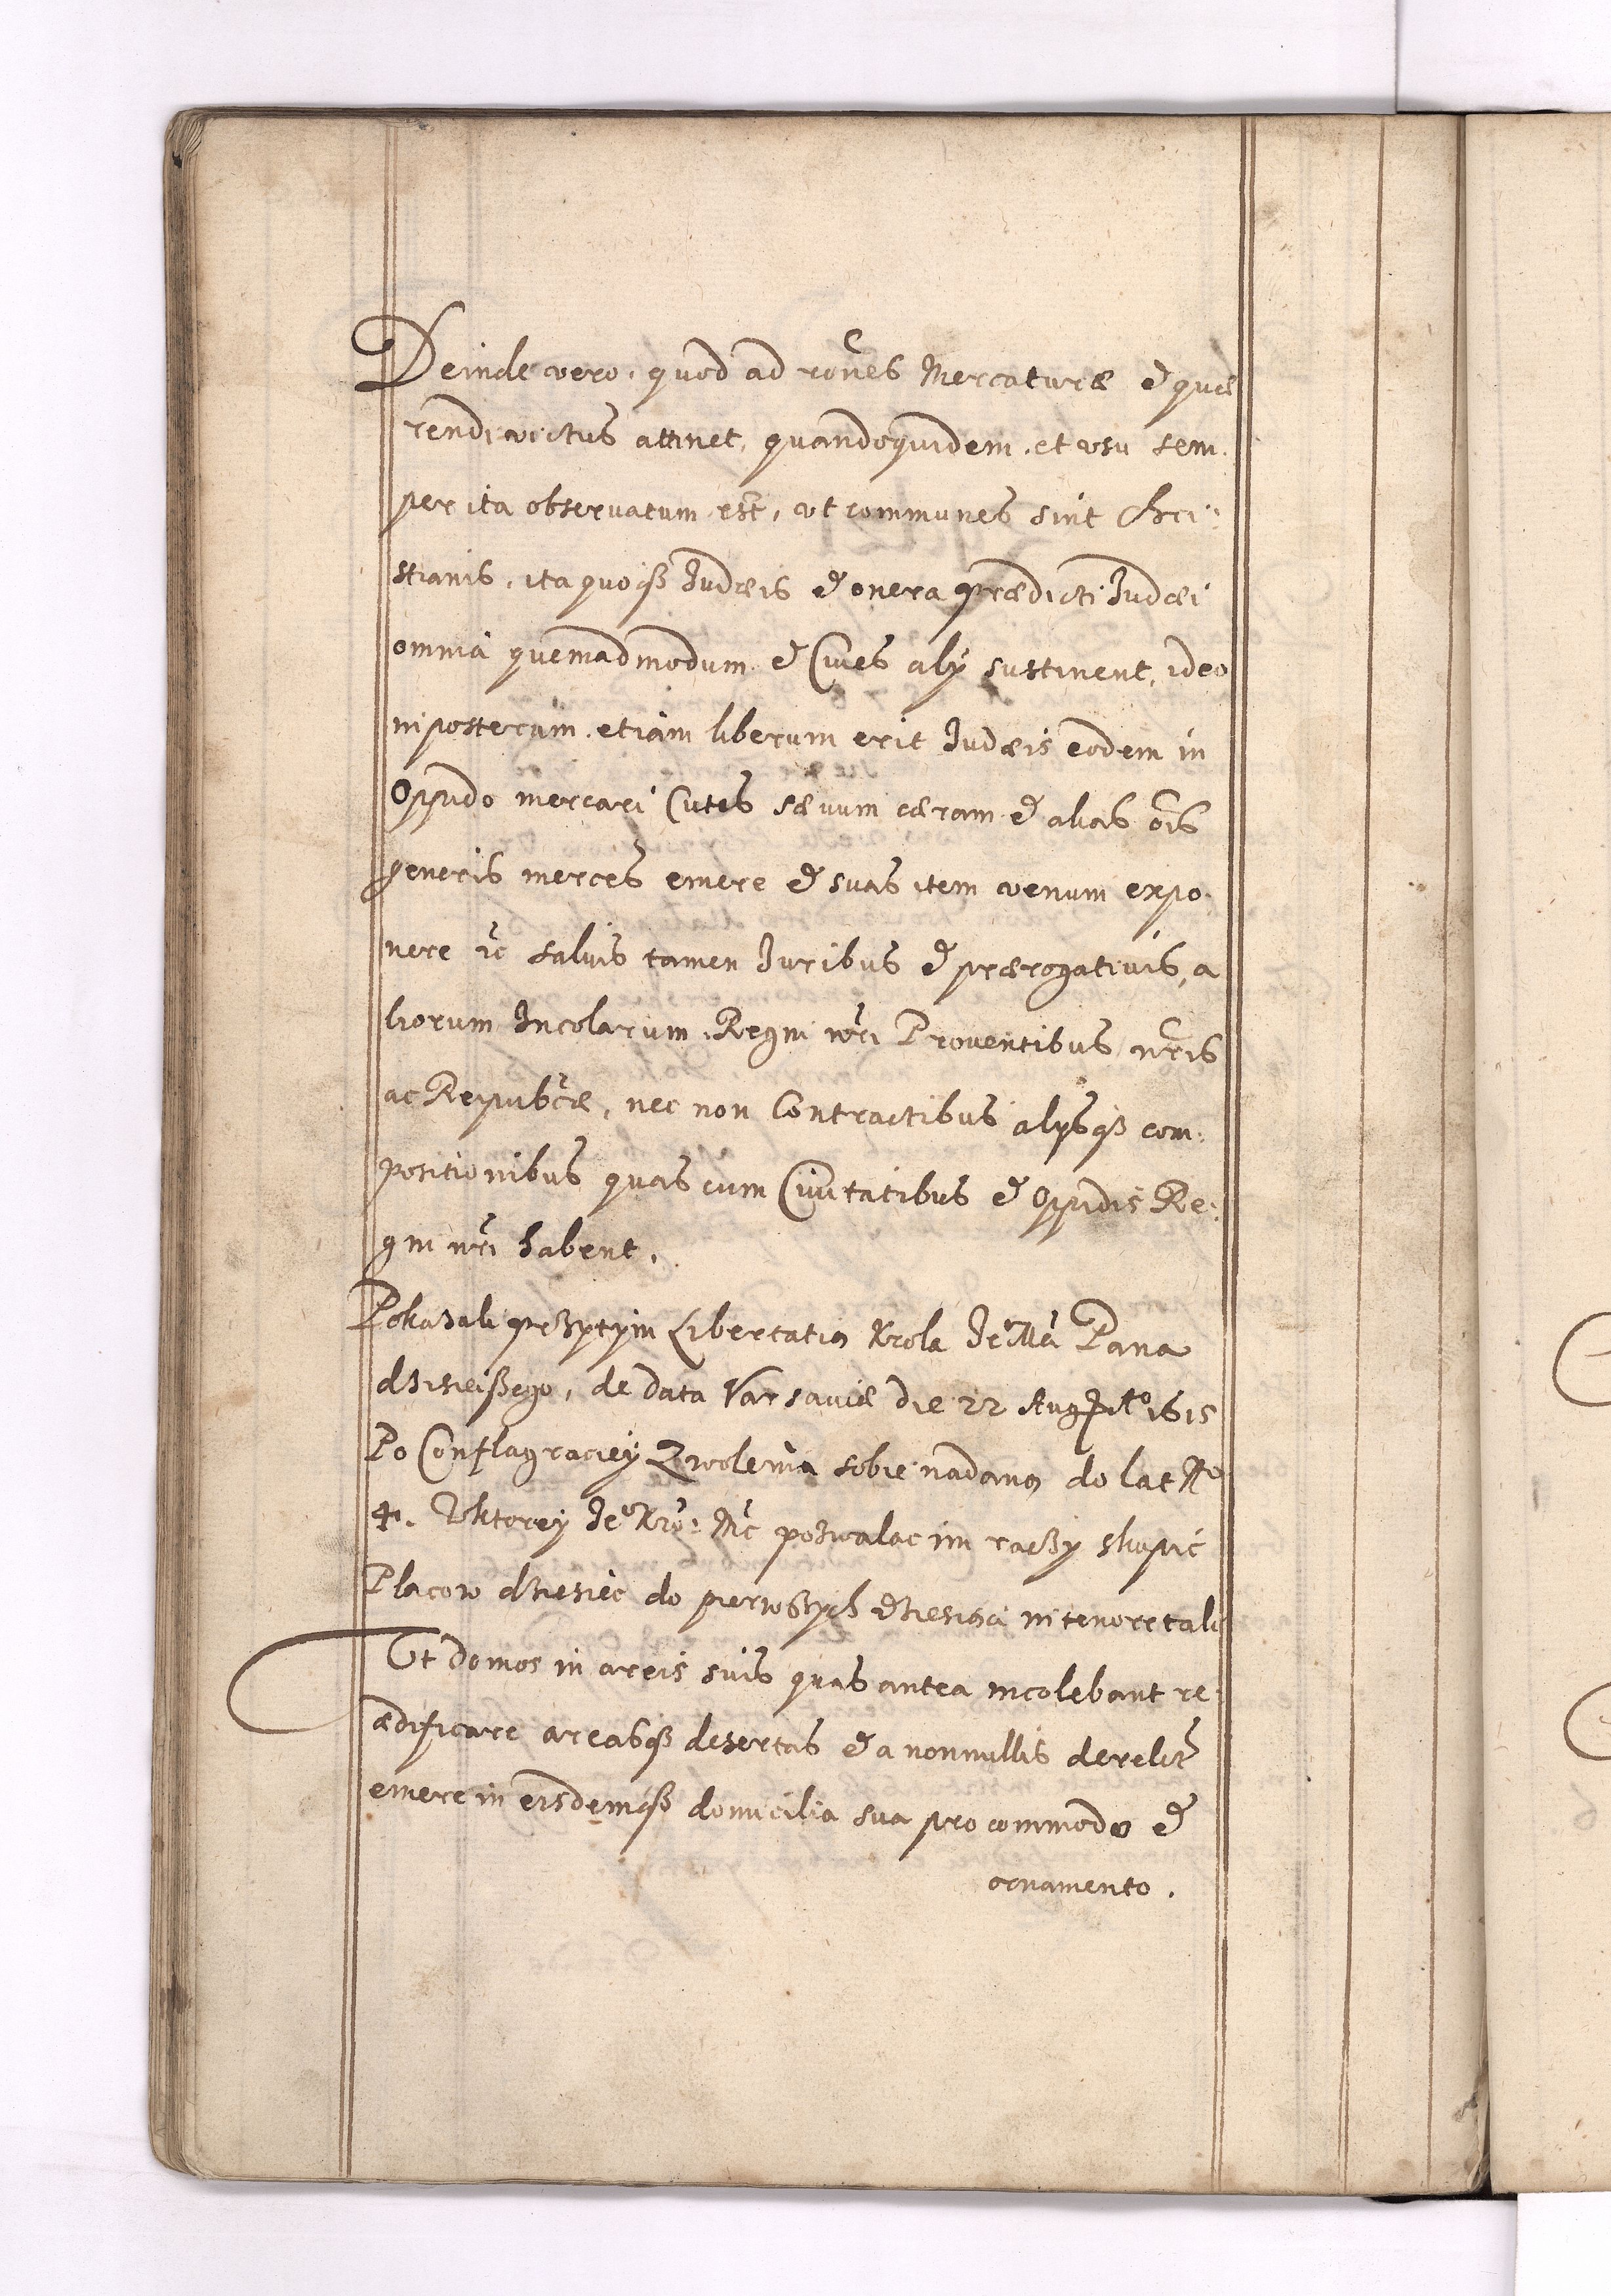 Deinde vero, quod ad rones Mercaturæ et quæ
rendi victus attinet, quandoquidem et vsu sem.
per ita obseruatum est, vt communes sint Chri:
stianis, ita quoqß Judæis et onera prædicti Judæi
omnia quemadmodum et Ciues alÿ sustinent, ideo
inposterum etiam liberum erit Judæis eodem in
Oppido mercari Cutes sævum cæram et alias ois
generis merces emere et suas item venum expo.
nere ic salvis tamen Juribus et prærogativis, a
liorum Incolarum Regni nri Prouentibus nris
ac Reipubcæ, nec non Contractibus alysqß com:
positionibus quas cum Ciuitatibus et Oppidis Re:
gni nri habent.
Pokazali przytym Libertatią Krola JeoMci Pana
dzisieißego, de data Varsauiæ die 22 Aug 1615
Po Conflagraciey Zwolenia sobie nadaną do lat No
4. Wktorey Jeo Kro: Mc pozwalac im raczy skupic
Placow dziesięc do pierwßych dziesiąci in tenore tali
Vt domos in areis suis quas antea incolebant re:
ædificare areasqß desertas et a nonnullis derelict
emere in eisdemqß domicilia sua pro commodo et
ornamento.